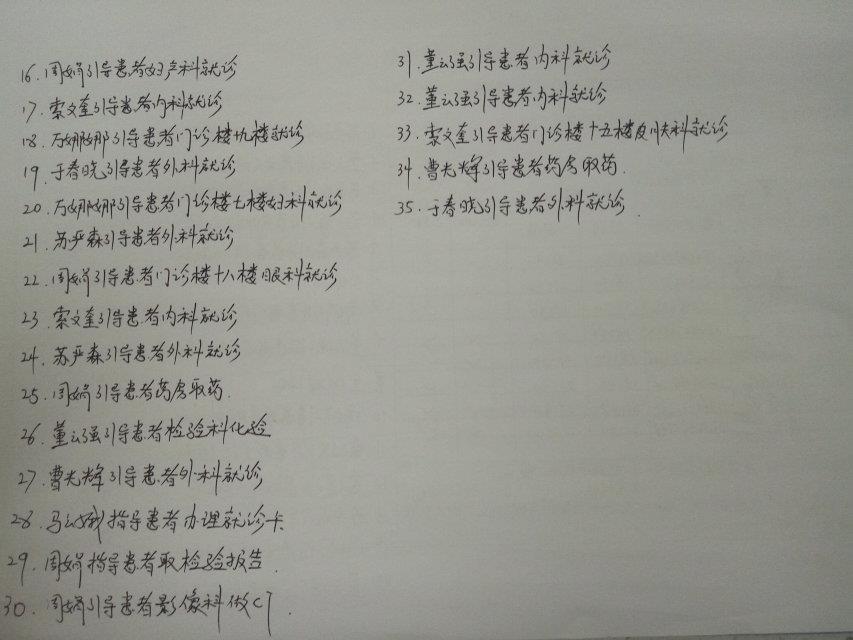 16.周娟引导患者妇产科就诊
17.索文奎引导患者内科就诊
18.万娜娜引导患者门诊楼九楼就诊
19.于春晓引导患者外科就诊
20.万娜娜引导患者门诊楼七楼妇科就诊
21.苏严森引导患者外科就诊
22.周娟引导患者门诊楼十八楼眼科就诊
23.索文奎引导患者内科就诊
24.苏严森引导患者外科就诊
25.周娟引导患者药房取药.
26.董云强引导患者检验科化验
27.曹光辉引导患者外科就诊
28.马云娥指导患者办理就诊卡
29.周娟指导患者取检验报告.
30.周娟引导患者影像科做CT.
31.董云强引导患者内科就诊
32.董云强引导患者内科就诊
33.索文奎引导患者门诊楼十五楼皮肤科就诊
34.曹光辉引导患者药房取药.
35.于春晓引导患者外科就诊.